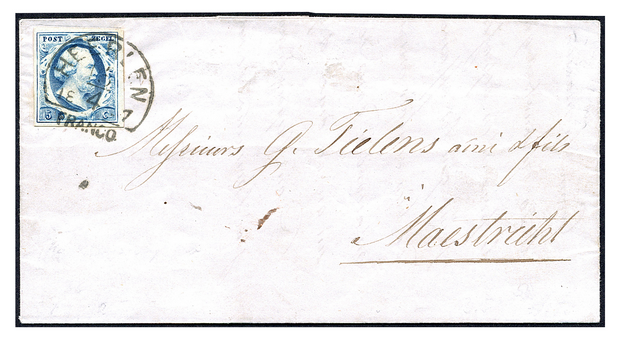 POST ZEGEL
HEERLEN
4 7
FRANCO
5 C.
Messieurs G. Tielens ainé & fils
à
Maestricht